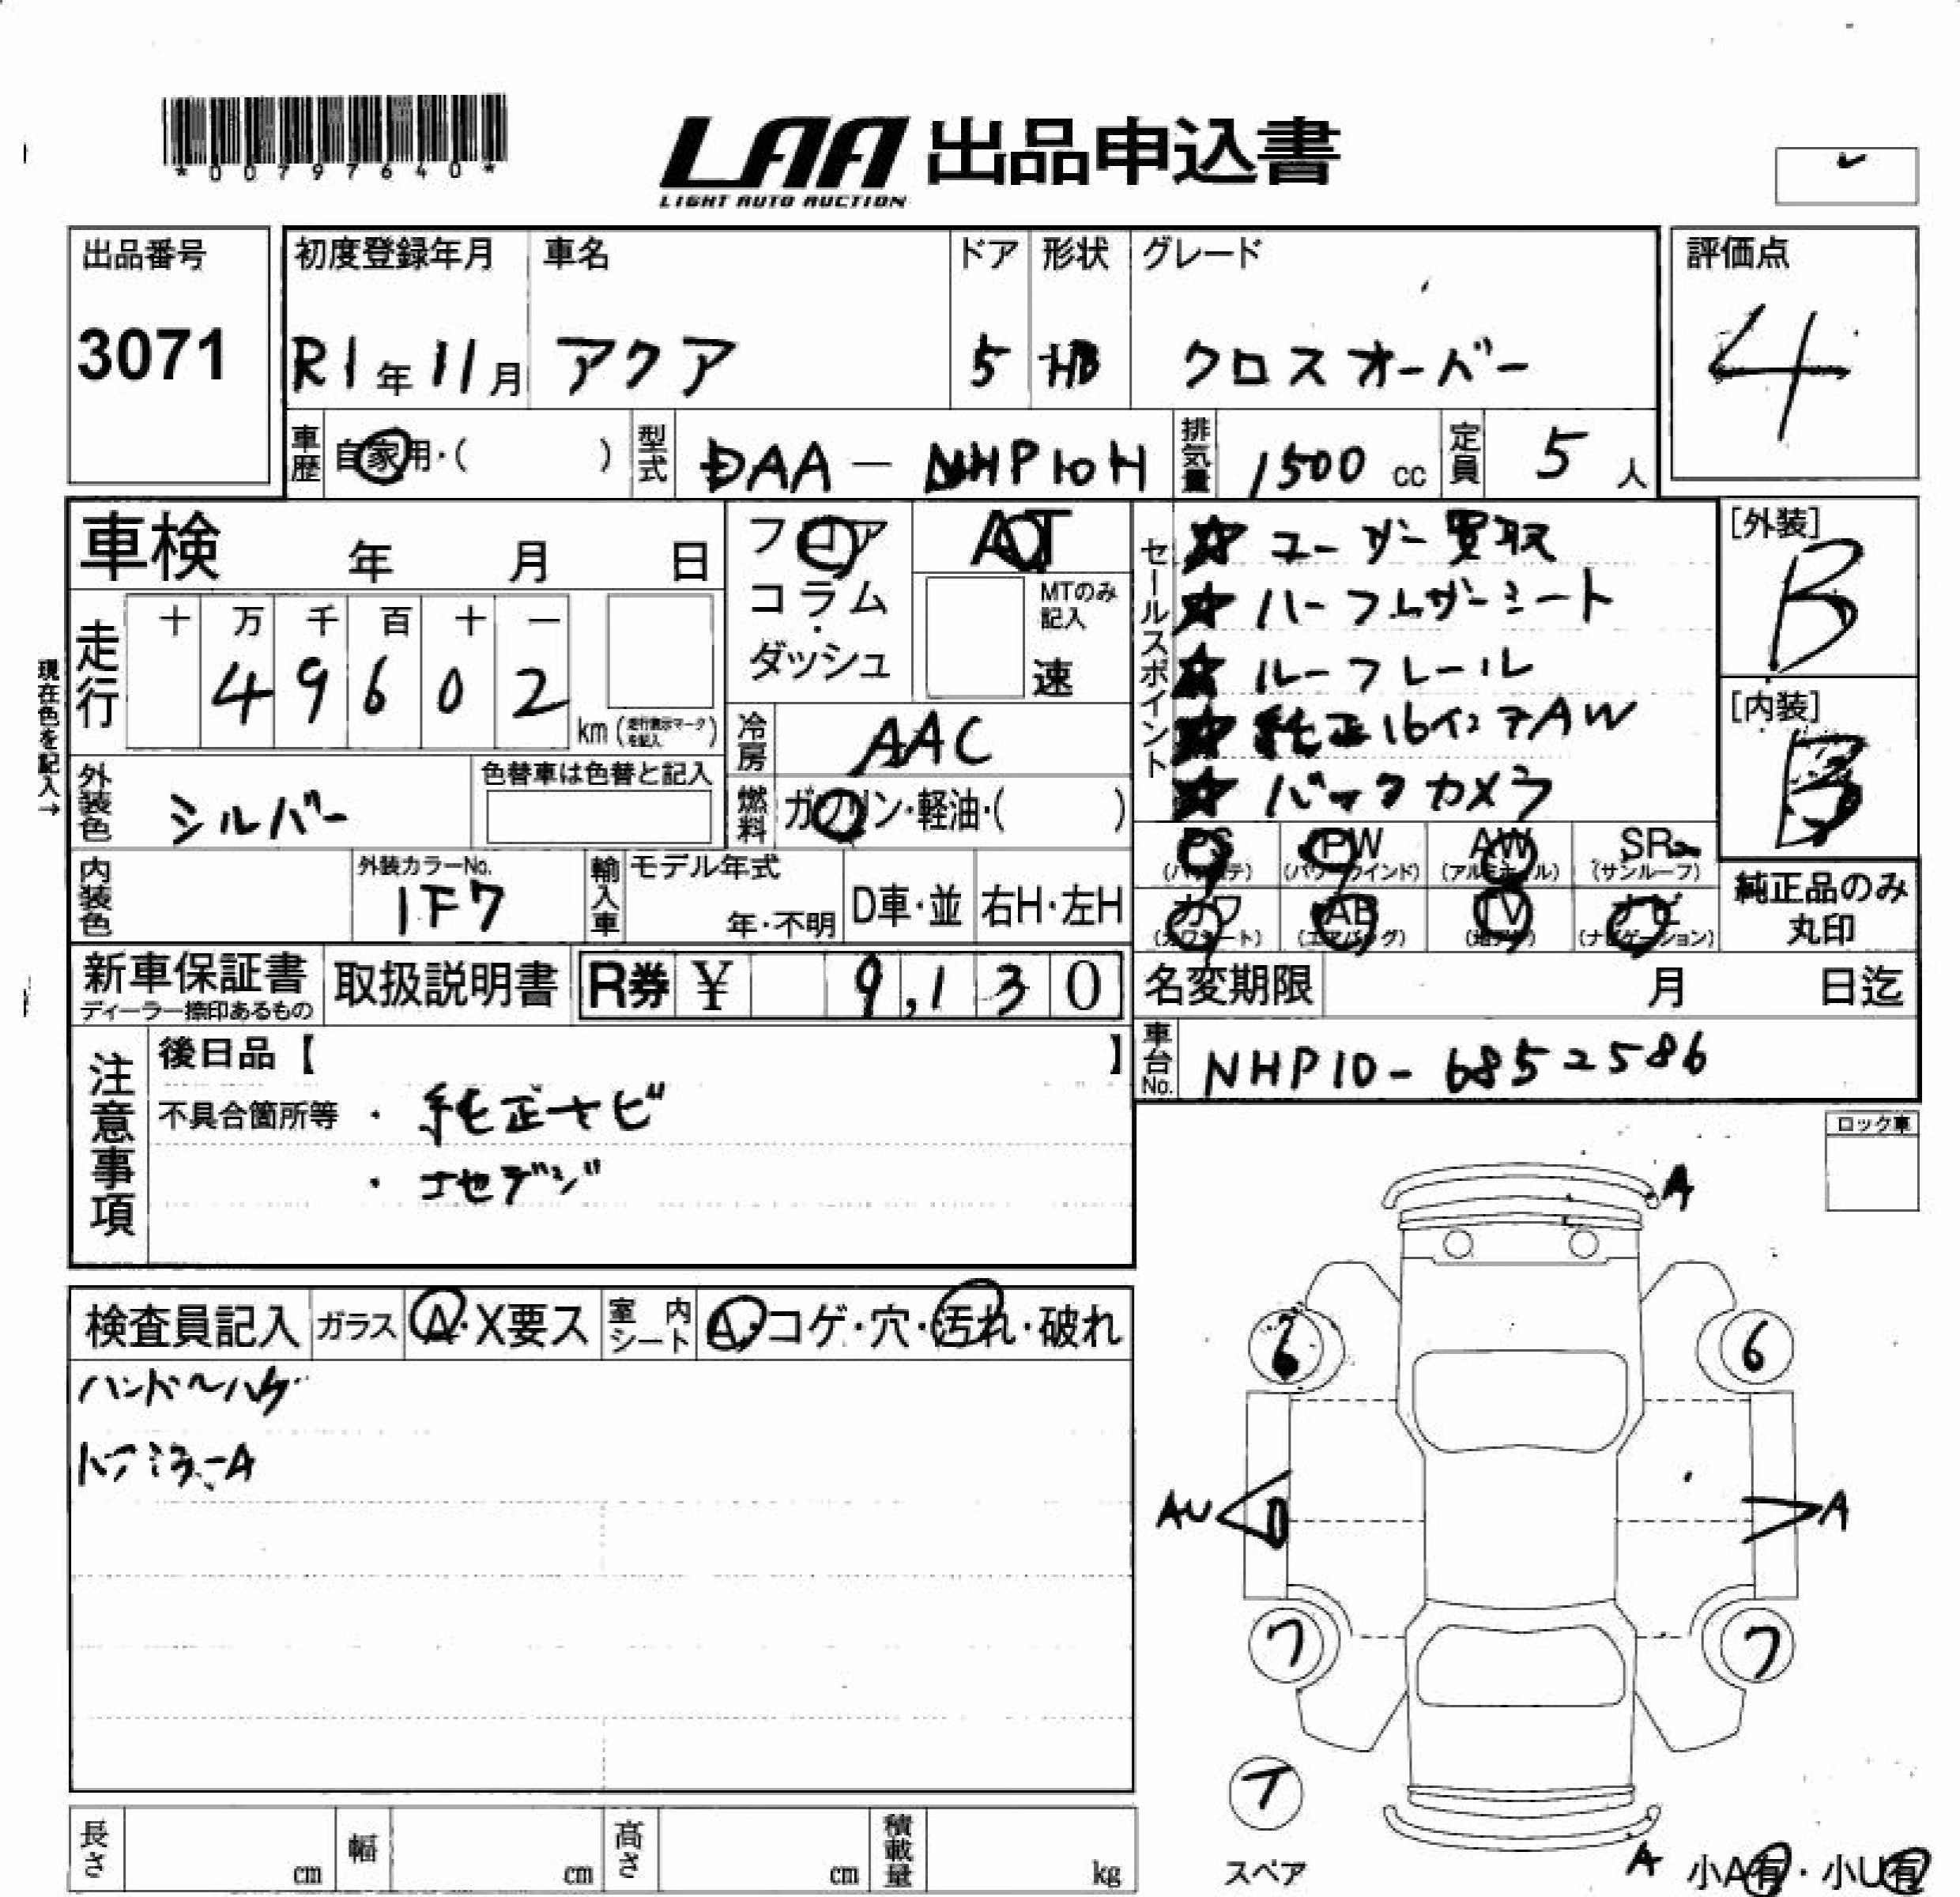 *00797640*
LAA 出品申込書
LIGHT AUTO AUCTION
出品番号
3071
初度登録年月
R1年11月
車名
アクア
ドア
5
形状
HB
グレード
クロスオーバー
評価点
4
車歴
自家用・( )
型式
DAA-NHP10H
排気量
1500 cc
定員
5 人
車検 年 月 日
フロア
コラム・
ダッシュ
AT
MTのみ記入
速
セールスポイント
☆ ユーザー買取
☆ ハーフレザーシート
☆ ルーフレール
☆ 純正16インチAW
☆ バックカメラ
[外装]
B
[内装]
B
現在色を記入→
走行
十 万 千 百 十 一
4 9 6 0 2
km (走行表示マークを記入)
冷房
AAC
外装色
シルバー
色替車は色替と記入
燃料
ガソリン・軽油・( )
PS PW AW SR
(パワステ) (パワーウインド) (アルミホイル) (サンルーフ)
カワ AB TV ナビ
(カワシート) (エアバッグ) (地デジ) (ナビゲーション)
純正品のみ
丸印
内装色
外装カラーNo.
1F7
輸入車
モデル年式
年・不明
D車・並
右H・左H
新車保証書
ディーラー捺印あるもの
取扱説明書
R券 ¥ 9,130
名変期限 月 日迄
車台No.
NHP10-6852586
注意事項
後日品【 】
不具合箇所等 ・ 純正ナビ
・ 地デジ
ロック車
検査員記入
ガラス
A・X要ス
室内シート
A・コゲ・穴・汚れ・破れ
ハンドルハゲ
ドアミラーA
A
6 6
AU A
7 7
T
スペア
A
小A有・小U有
長さ cm
幅 cm
高さ cm
積載量 kg